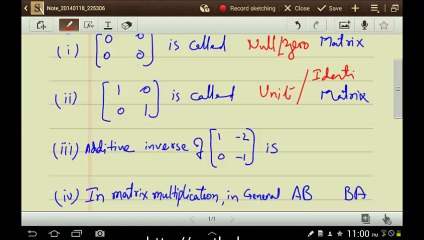 Note_20140118_228306
Record sketching
(i) [0 0
0 0] is called Null/zero Matrix
(ii) [1 0
0 1] is called Unit/Identi Matrix
(iii) Additive inverse of [1 -2
0 -1] is
(iv) In matrix multiplication, in General AB BA
1/1
11:00 PM